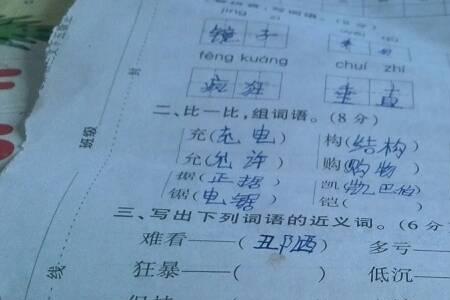 镜子
fēng kuáng chuí zhí
疯狂 垂直
二、比一比,组词语。(8分)
充(充电) 构(结构)
允(允许) 购(购物)
据(正据) 凯(凯巴伯)
锯(电锯) 铠( )
三、写出下列词语的近义词。(6分
难看——(丑陋) 多亏——
狂暴——( ) 低沉——
班级
封
线